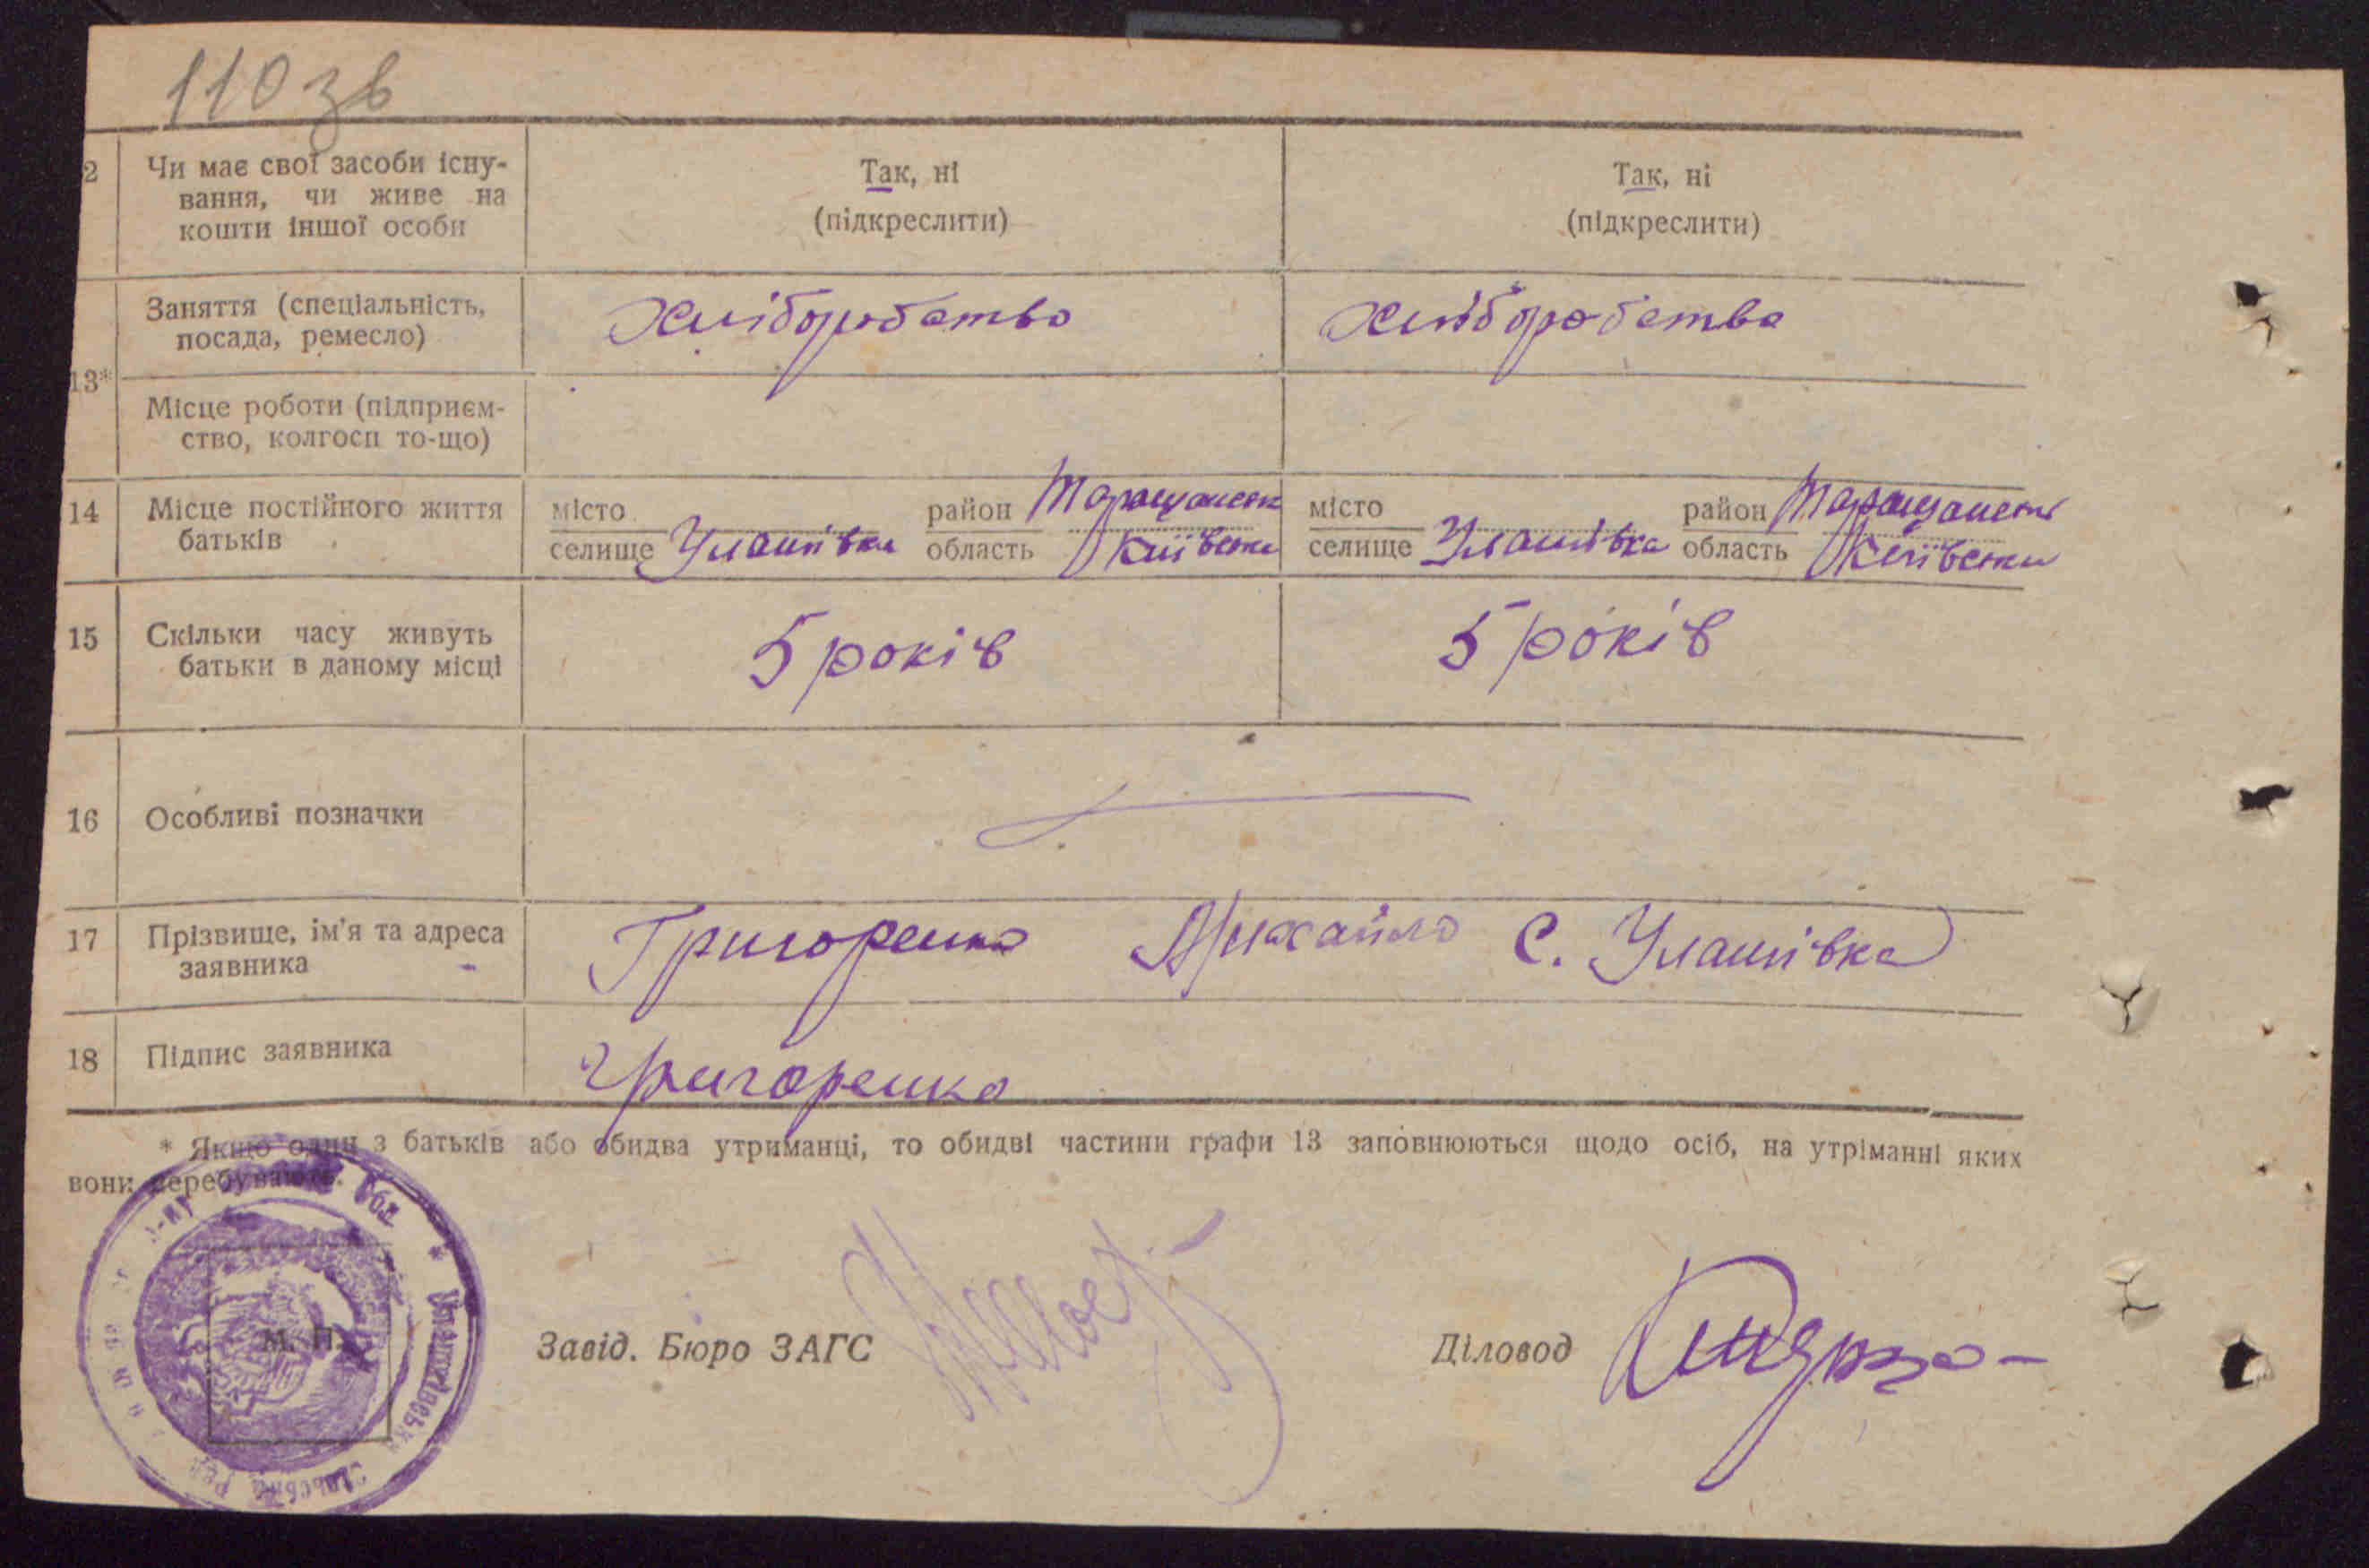 110 зв
2 Чи має свої засоби існу- Так, ні Так, ні
вання, чи живе на
кошти іншої особи (підкреслити) (підкреслити)
Заняття (спеціальність, Хліборобство Хліборобство
посада, ремесло)
13*
Місце роботи (підприєм-
ство, колгосп то-що)
14 Місце постійного життя місто район Таращанськ місто район Таращанськ
батьків селище Улашівка область Київськ селище Улашівка область Київськ
15 Скільки часу живуть 5 років 5 років
батьки в даному місці
16 Особливі позначки
17 Прізвище, ім'я та адреса Григоренко Михайло С. Улашівка
заявника
18 Підпис заявника Григоренко
* Якщо один з батьків або обидва утриманці, то обидві частини графи 13 заповнюються щодо осіб, на утріманні яких
вони перебувають.
М. П.
Завід. Бюро ЗАГС Діловод